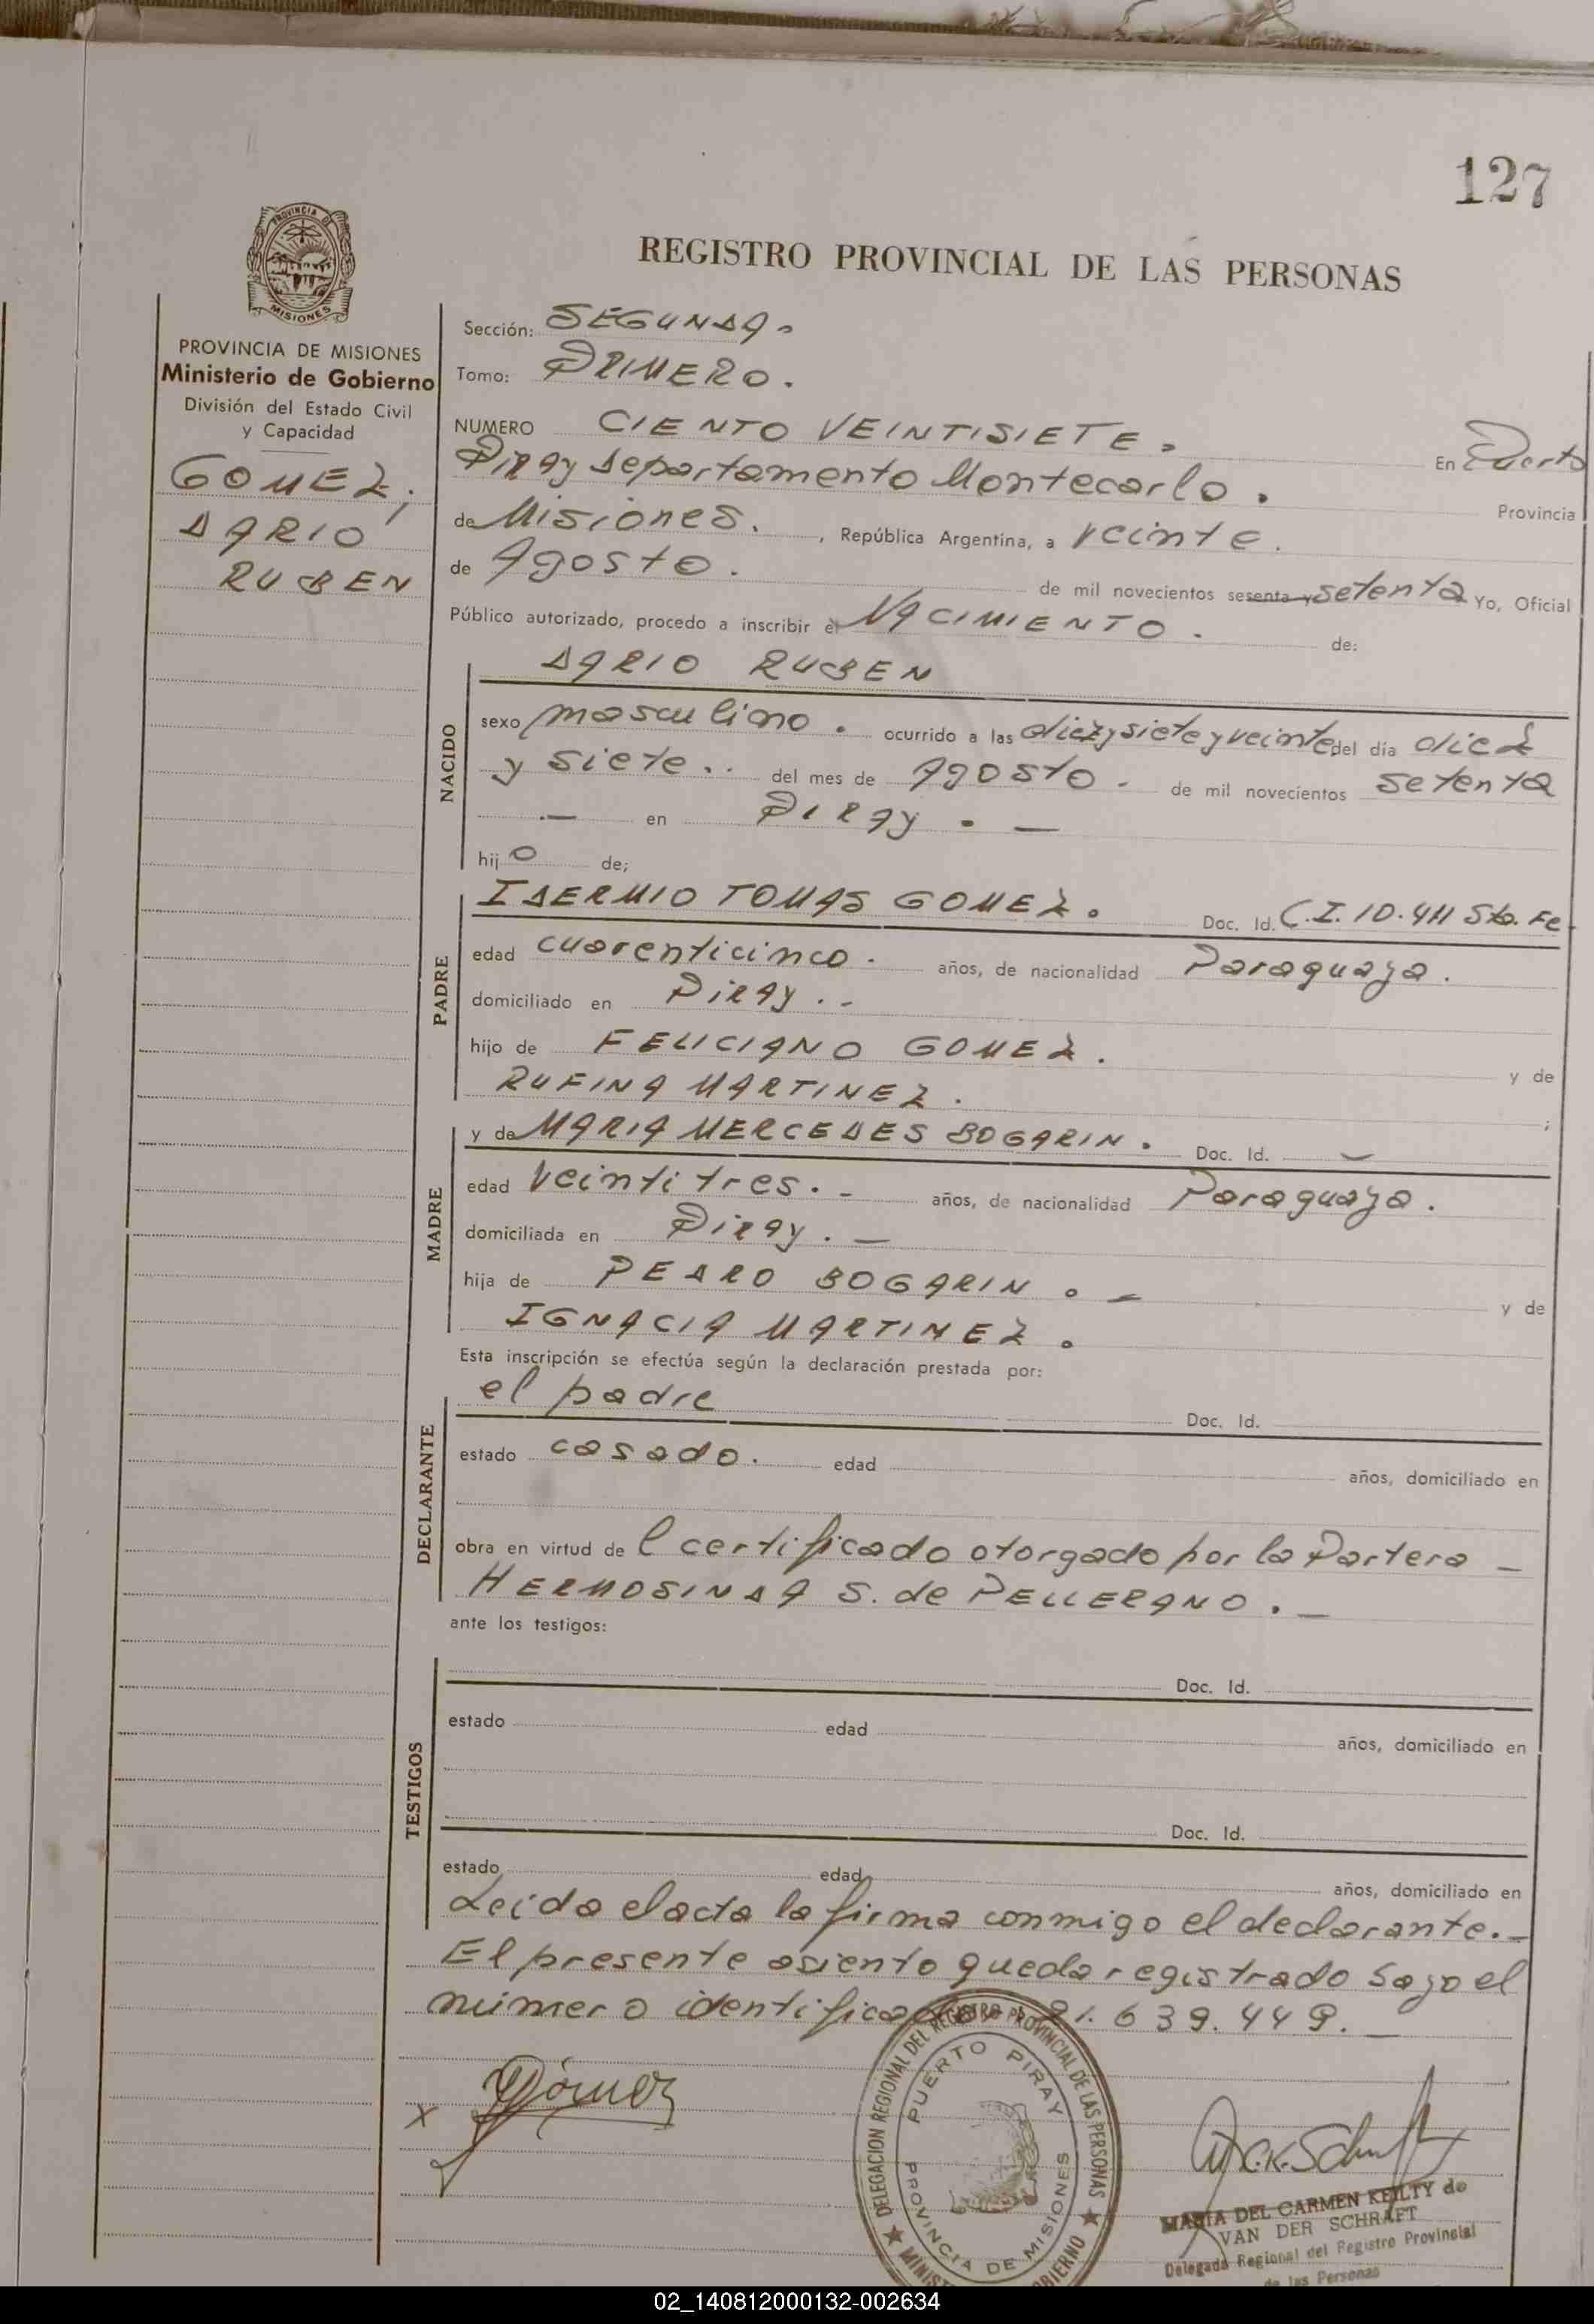 127
REGISTRO PROVINCIAL DE LAS PERSONAS
PROVINCIA DE
MISIONES
PROVINCIA DE MISIONES
Ministerio de Gobierno
División del Estado Civil
y Capacidad
GOMEZ,
DARIO
RUBEN
Sección: SEGUNDA.
Tomo: PRIMERO.
NUMERO CIENTO VEINTISIETE. En Puerto
Piray Departamento Montecarlo. Provincia
de Misiones. , República Argentina, a veinte.
de Agosto. de mil novecientos sesenta y setenta Yo, Oficial
Público autorizado, procedo a inscribir el NACIMIENTO. de:
DARIO RUBEN
NACIDO
sexo masculino. ocurrido a las diez y siete y veinte del día diez
y siete.. del mes de Agosto. de mil novecientos setenta
— en PIRAY. —
hijo de;
PADRE
IDERMIO TOMAS GOMEZ. Doc. Id. C.I. 10.411 Sta. Fe.
edad cuarenticinco. años, de nacionalidad Paraguaya.
domiciliado en PIRAY. -
hijo de FELICIANO GOMEZ. y de
RUFINA MARTINEZ. ;
MADRE
y de MARIA MERCEDES BOGARIN. Doc. Id. —
edad veintitres. - años, de nacionalidad Paraguaya.
domiciliada en PIRAY. —
hija de PEDRO BOGARIN. - y de
IGNACIA MARTINEZ.
Esta inscripción se efectúa según la declaración prestada por:
DECLARANTE
el padre Doc. Id.
estado casado. edad años, domiciliado en
obra en virtud de l certificado otorgado por la Partera —
HERMOSINDA S. de PELLERANO. —
ante los testigos:
TESTIGOS
Doc. Id.
estado edad años, domiciliado en
Doc. Id.
estado edad años, domiciliado en
Leida el acta la firma conmigo el declarante. —
El presente asiento queda registrado bajo el
número identificador 21.639.449. —
x Gómez
DELEGACION REGIONAL DEL REGISTRO PROVINCIAL DE LAS PERSONAS
PUERTO PIRAY
PROVINCIA DE MISIONES
MARIA DEL CARMEN KEILTY de
VAN DER SCHRAFT
Delegada Regional del Registro Provincial
de las Personas
02_140812000132-002634